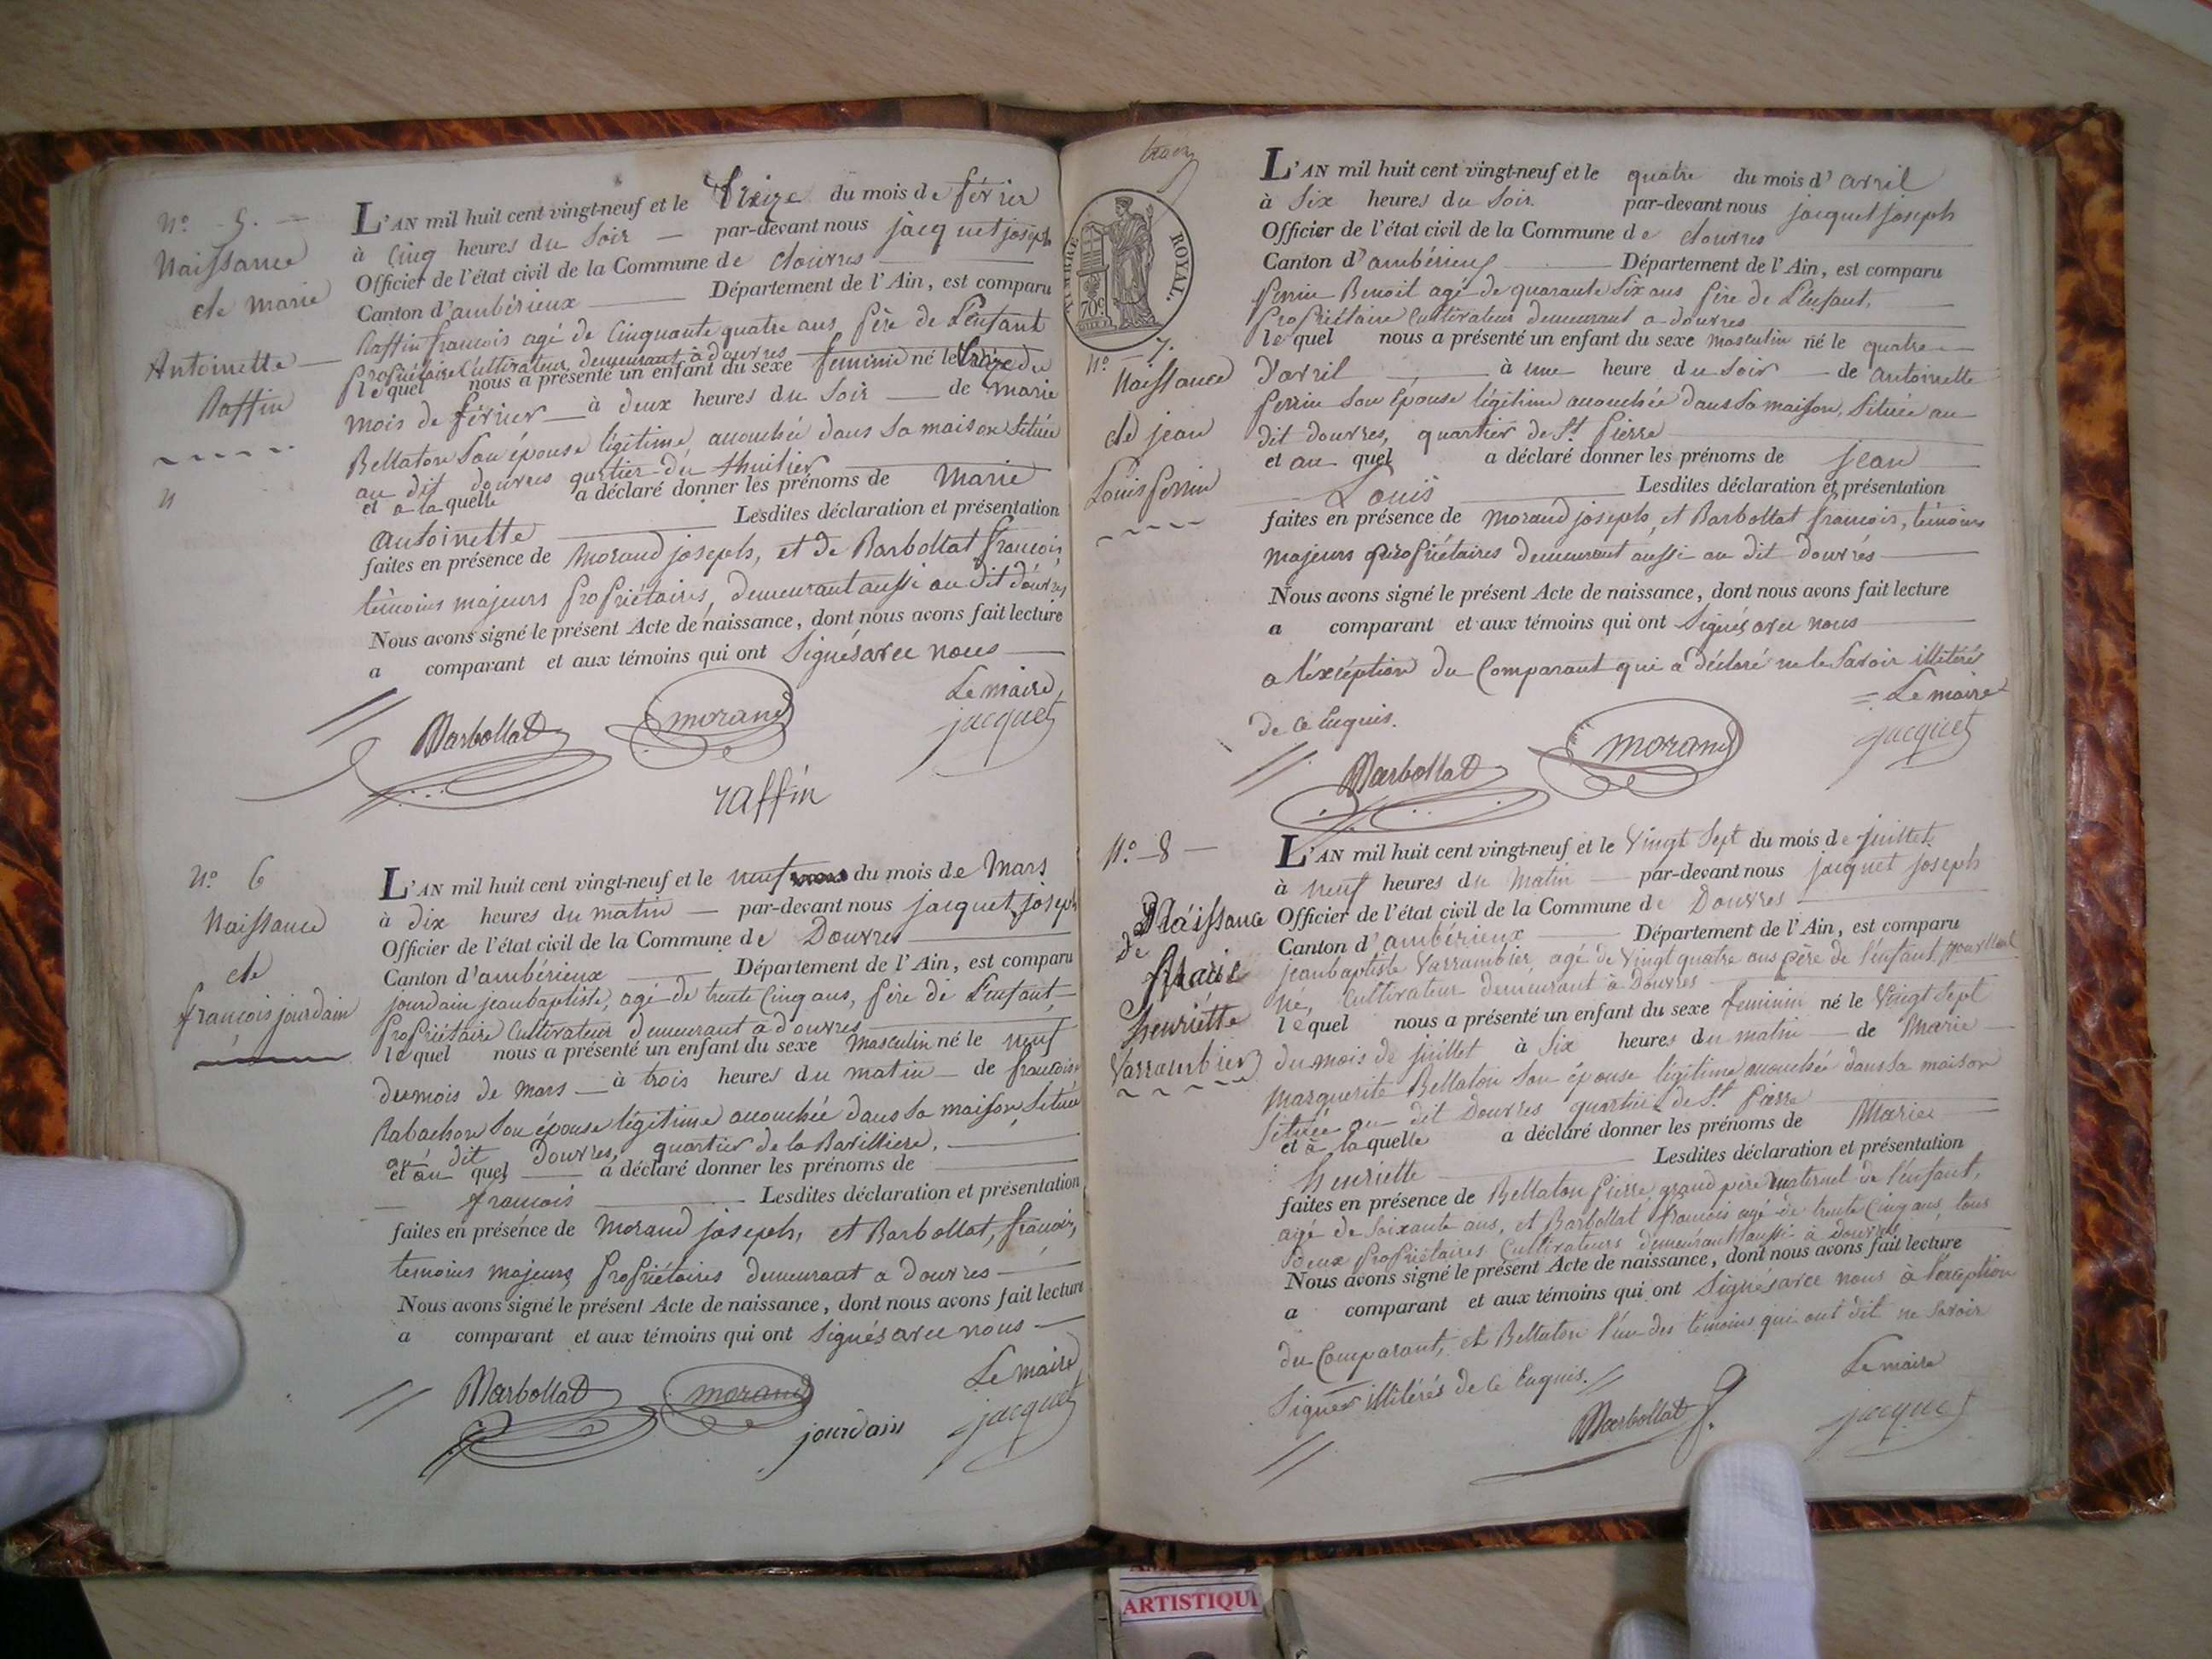 N.o 5.
Naissance
de marie
Antoinette
Raffin
L'AN mil huit cent vingt-neuf et le treize du mois de février
à Cinq heures du Soir par-devant nous jacquet joseph
Officier de l'état civil de la Commune de douvres
Canton d'ambérieux Département de l'Ain, est comparu
Raffin francois agé de Cinquante quatre ans Père de L'enfant
Propriétaire Cultivateur demeurant à douvres
lequel nous a présenté un enfant du sexe feminin né le treize du
mois de février à deux heures du Soir de marie
Bellaton Son épouse légitime, accouchée dans Sa maison Située
au dit douvres qurtier du thuilier
et a laquelle a déclaré donner les prénoms de Marie
antoinette Lesdites déclaration et présentation
faites en présence de Morand joseph, et de Barbollat francois,
témoins majeurs Propriétaires, demeurant aussi au dit douvres
Nous avons signé le présent Acte de naissance, dont nous avons fait lecture
a comparant et aux témoins qui ont Signés avec nous
Le maire
Barbollat morand jacquet
raffin
N.o 6
Naissance
de
françois jourdain
L'AN mil huit cent vingt-neuf et le neuf du mois de Mars
à dix heures du matin par-devant nous jacquet joseph
Officier de l'état civil de la Commune de Douvres
Canton d'ambérieux Département de l'Ain, est comparu
jourdain jeanbaptiste, agé de trente Cinq ans, Père de L'enfant,
Propriétaire Cultivateur demeurant a douvres
lequel nous a présenté un enfant du sexe Masculin né le neuf
du mois de Mars à trois heures du matin de francoise
Rabachon Son épouse légitime accouchée dans Sa maison, Située
au dit Douvres, quartier de la Barilliere,
et au quel a déclaré donner les prénoms de
francois Lesdites déclaration et présentation
faites en présence de Morand joseph, et Barbollat, francois,
temoins majeurs Propriétaires demeurant a douvres
Nous avons signé le présent Acte de naissance, dont nous avons fait lecture
a comparant et aux témoins qui ont Signés avec nous
Le maire
Barbollat morand jourdain jacquet
TIMBRE ROYAL.
70c
N.o 7.
Naissance
de jean
Louis Perrin
L'AN mil huit cent vingt-neuf et le quatre du mois d'avril
à Six heures du Soir par-devant nous jacquet joseph
Officier de l'état civil de la Commune de douvres
Canton d'ambérieux Département de l'Ain, est comparu
Perrin Benoit agé de quarante Six ans Père de L'enfant,
Propriétaire Cultivateur demeurant a douvres
lequel nous a présenté un enfant du sexe masculin né le quatre
d'avril à une heure du Soir de antoinette
Perrin Son Epouse légitime accouchée dans Sa maison, Située au
dit douvres, quartier de St. Pierre
et au quel a déclaré donner les prénoms de Jean
Louis Lesdites déclaration et présentation
faites en présence de Morand joseph, et Barbollat francois, témoins
majeurs propriétaires demeurant aussi au dit Douvres
Nous avons signé le présent Acte de naissance, dont nous avons fait lecture
a comparant et aux témoins qui ont Signés avec nous
a l'éxcéption du Comparant qui a déclaré ne le Savoir illitéré
de Ce Enquis.
Le maire
Barbollat morand jacquet
N.o 8
Naissance
de
Marie
henriette
Varrambier
L'AN mil huit cent vingt-neuf et le Vingt Sept du mois de juillet
à neuf heures du Matin par-devant nous jacquet joseph
Officier de l'état civil de la Commune de Douvres
Canton d'ambérieux Département de l'Ain, est comparu
jeanbaptiste Varrambier agé de Vingt quatre ans père de l'enfant, nouveau
né, Cultivateur demeurant à Douvres
lequel nous a présenté un enfant du sexe feminin né le Vingt Sept
du mois de juillet à Six heures du matin de Marie
Marguerite Bellaton Son épouse légitime accouchée dans Sa maison
Située au dit Douvres quartier de St. Pierre
et à laquelle a déclaré donner les prénoms de Marie
henriette Lesdites déclaration et présentation
faites en présence de Bellaton Pierre grand père Maternel de l'enfant,
agé de Soixante ans, et Barbollat francois agé de trente Cinq ans, tous
deux Propriétaires Cultivateurs demeurant aussi à douvres
Nous avons signé le présent Acte de naissance, dont nous avons fait lecture
a comparant et aux témoins qui ont Signés avec nous à l'exception
du Comparant, et Bellaton l'un des témoins qui ont dit ne Savoir
Signer illitérés de Ce Enquis.
Le maire
Barbollat jacquet
ARTISTIQU